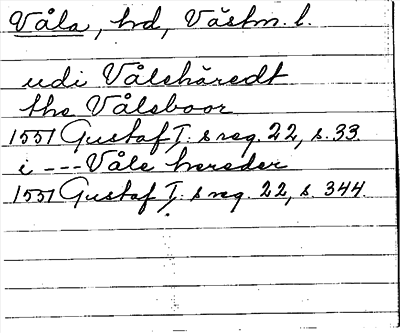 Våla, hd, Västm. l.
udi Vålehäredt
the Våleboor
1551 Gustaf I:s reg. 22, s. 33.
i --- Våle hereder
1551 Gustaf I:s reg. 22, s. 344.